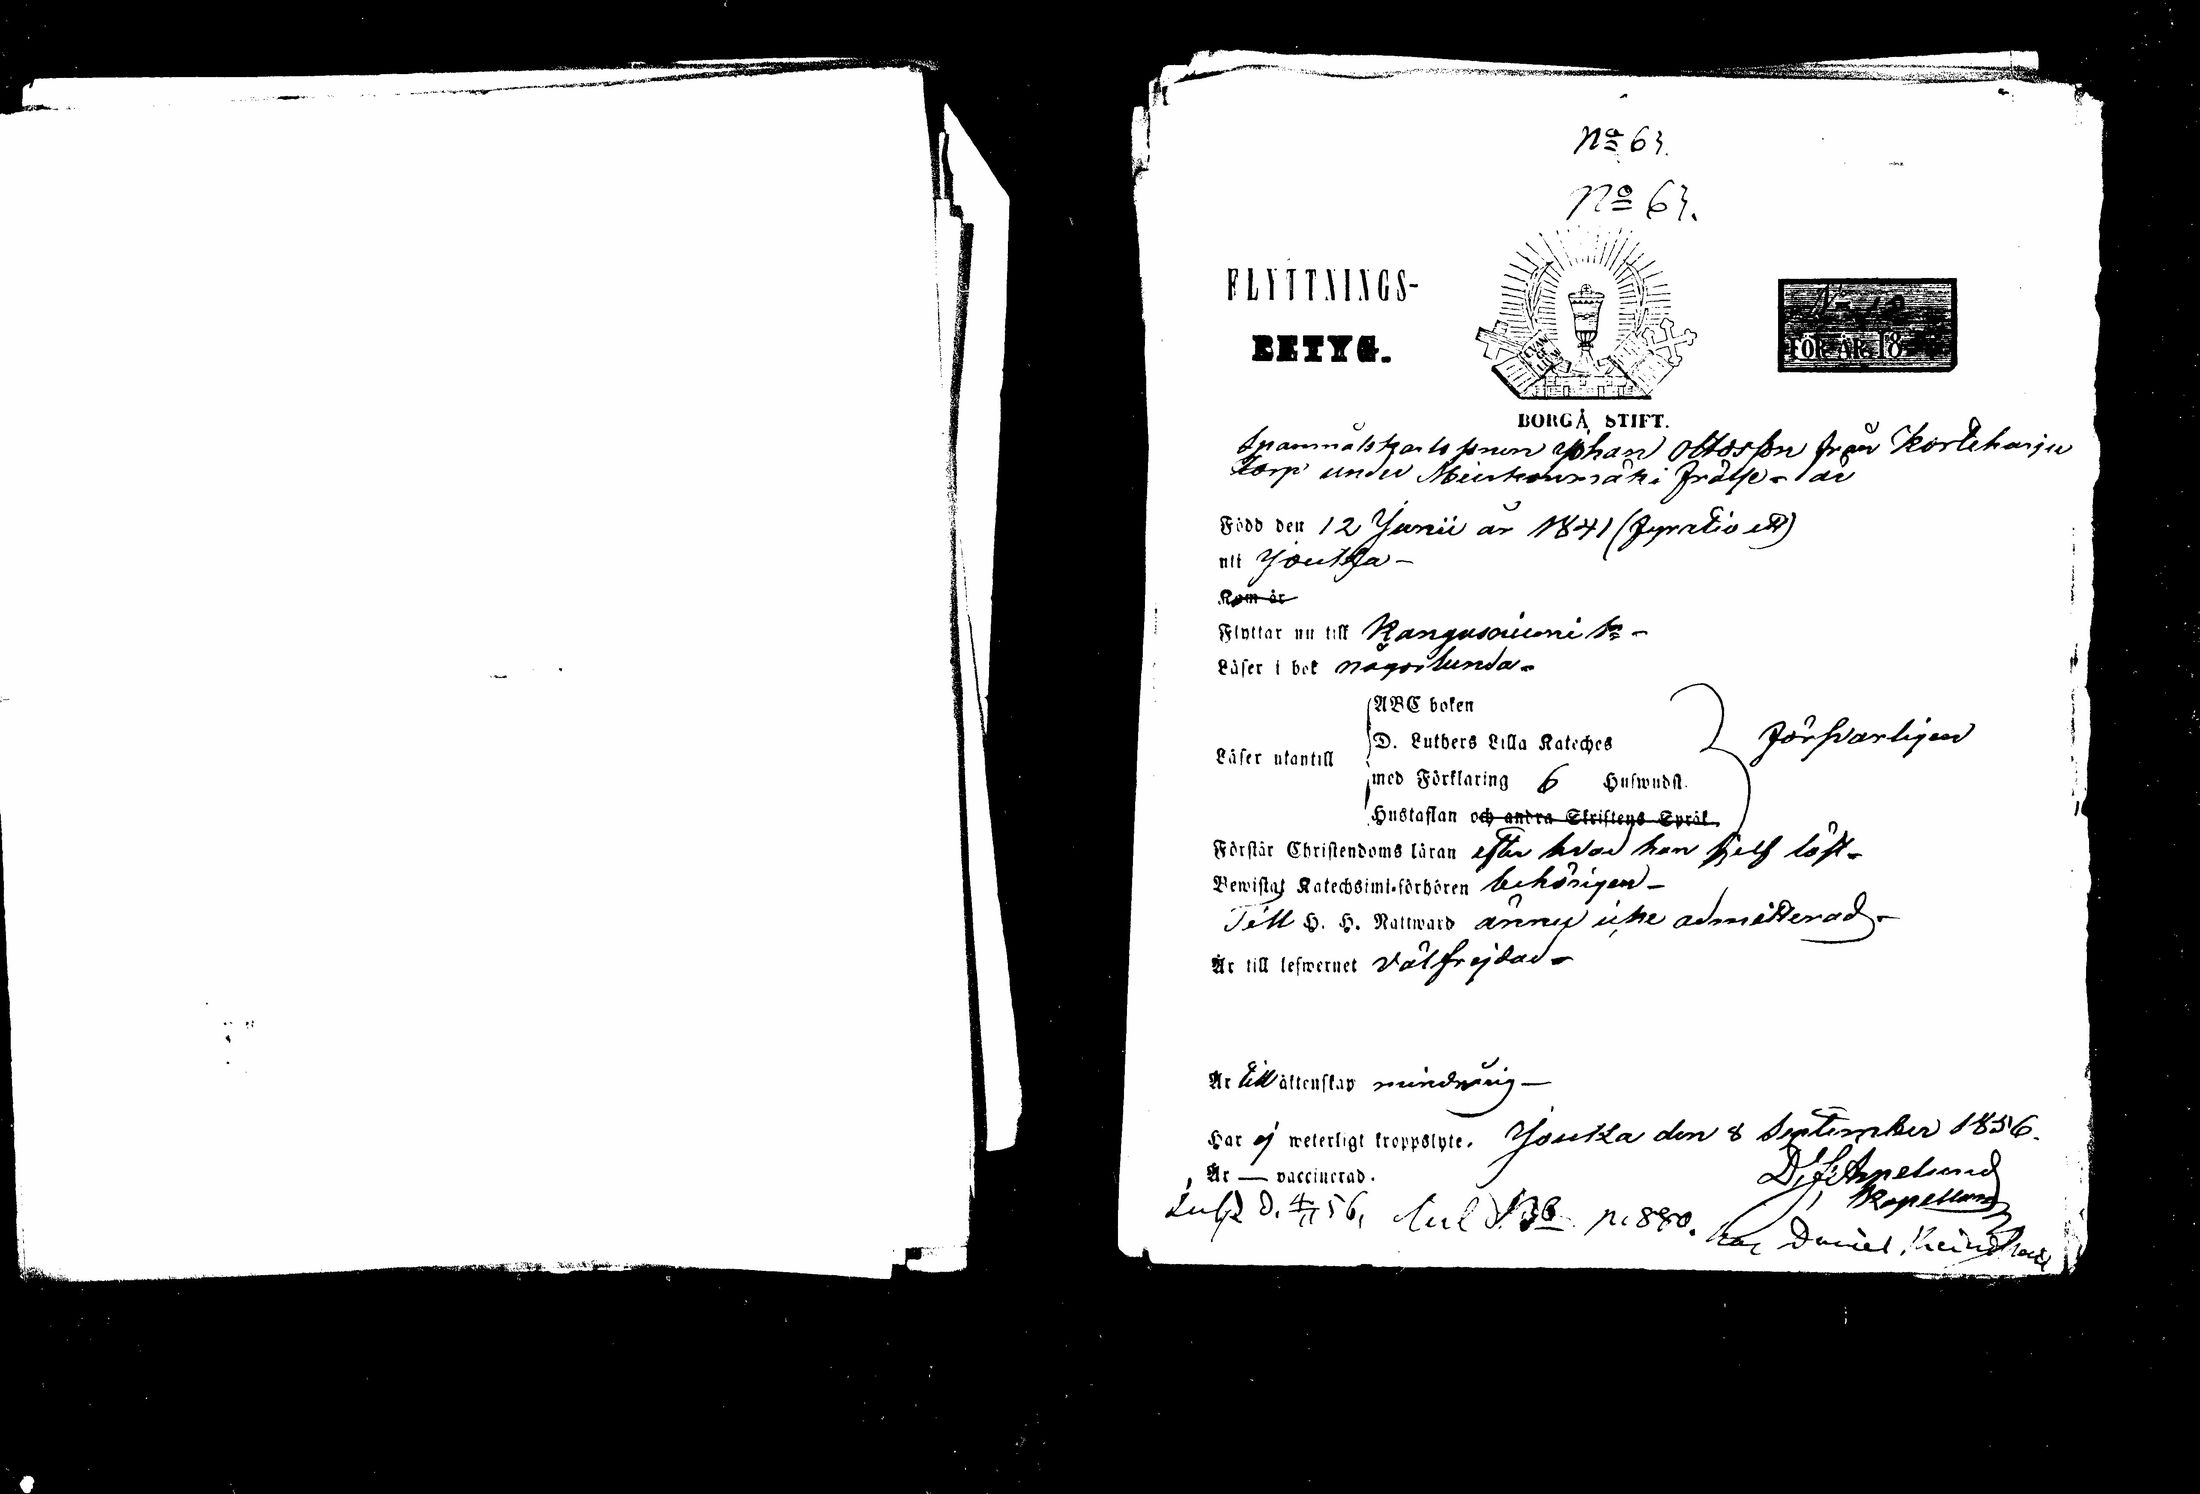 No 63.
No 63.
FLYTTNINGS-
BETYG.
No
FÖR ÅR 18
BORGÅ STIFT.
Johan Ottosson från Korteharju
torp under frälse - är
Född den 12 Junii år 1841 ( ett)
uti Joutsa -
Kom år
Flyttar nu till Kangasniemi Sn -
Läser i bok någorlunda -
ABC boken
D. Luthers Lilla Kateches
Läser utantill
försvarligen
med Förklaring 6 Hufwudst.
Hustaflan och andra Skriftens Språk.
Förstår Christendoms läran efter hvad han sjelf läst -
Bewistat Katechismi-förhören behörigen -
Till H. H. Nattward ännu icke admitterad -
Är till lefwernet välfrejdad -
Är till äktenskap minderårig -
Har ej weterligt kroppslyte. Joutsa den 8 September 1856.
Är — vaccinerad.
Kapellan
56. p. 880. Daniel